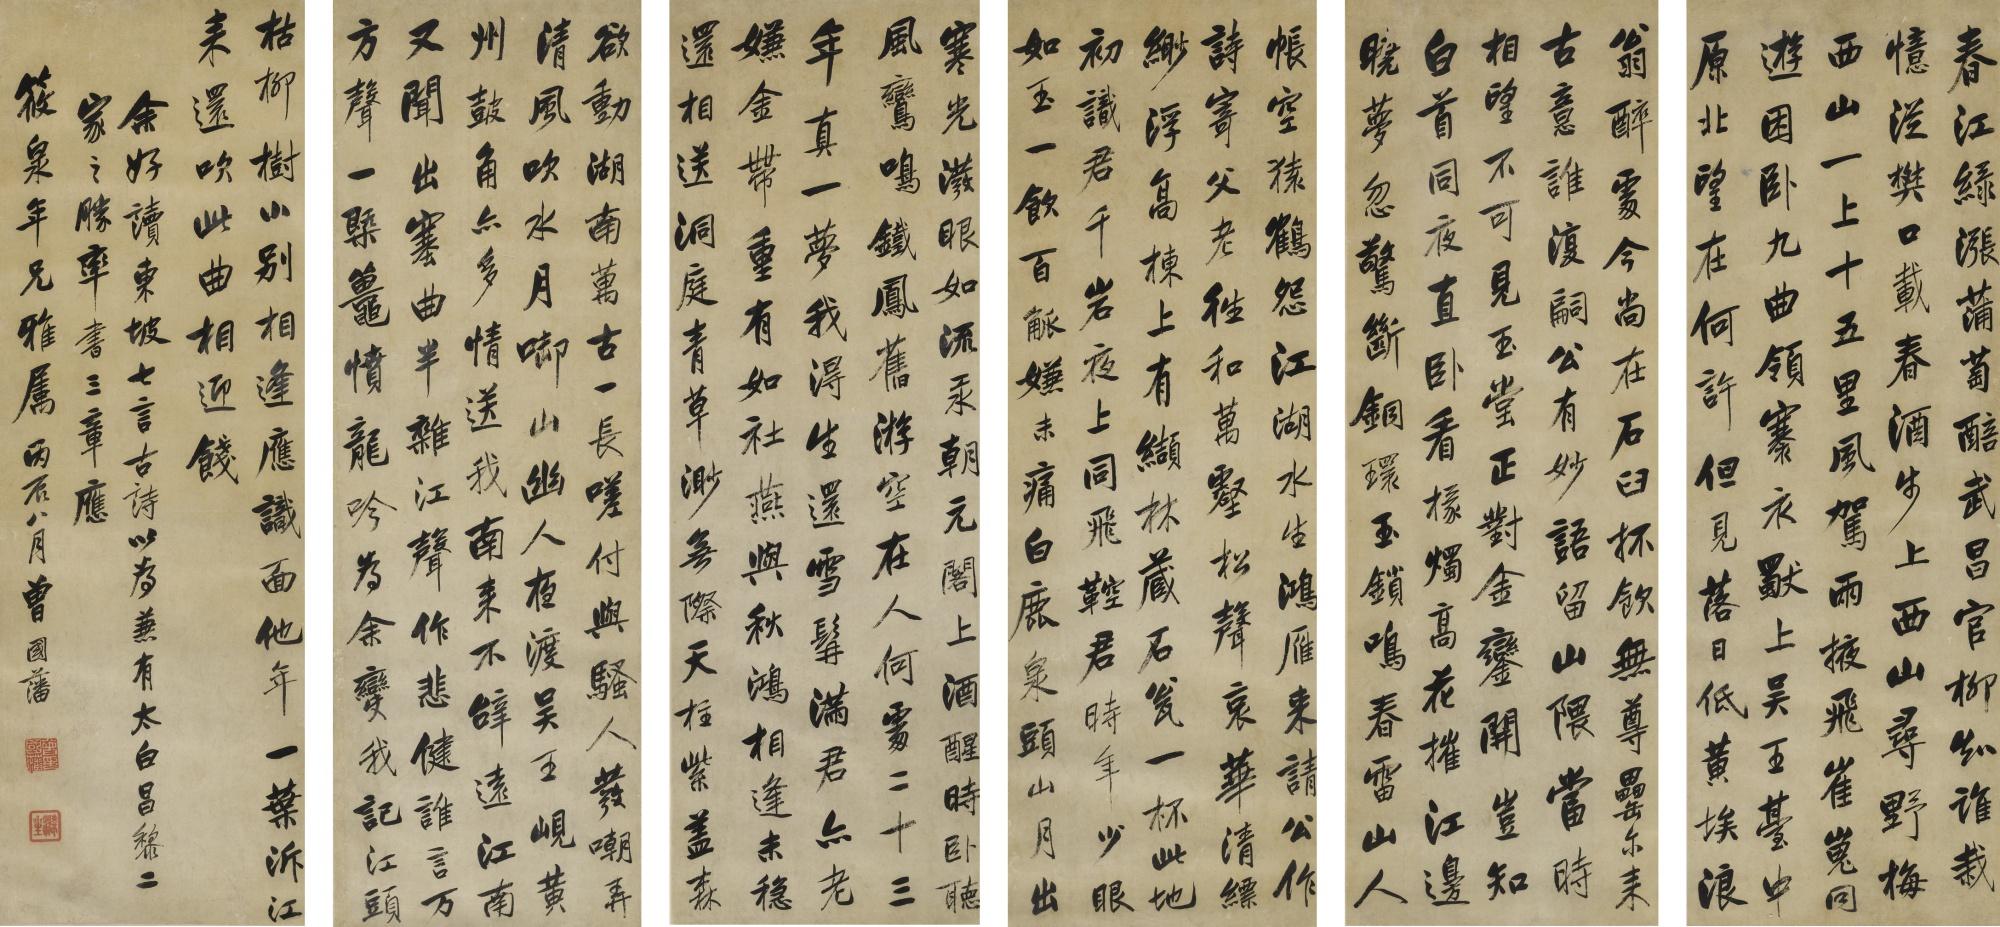 春江綠漲蒲萄醅武昌官柳知誰栽
憶從樊口載春酒步上西山尋野梅
西山一上十五里風駕兩掖飛崔嵬同
遊困臥九曲領褰衣獸上吳王臺中
原北望在何許但見落日低黃埃浪
翁醉處今尚在石臼抔飲無尊罍爾來
古意誰復嗣公有妙語留山隈當時
相望不可見玉堂正對金鑾開豈知
白首同夜直臥看椽燭高花摧江邊
曉夢忽驚斷銅環玉鎖鳴春雷山人
帳空猿鶴怨江湖水生鴻雁來請公作
詩寄父老往和萬壑松聲哀華清縹
緲浮高棟上有纈林藏石瓮一杯此地
初識君千岩夜上同飛鞚君時年少眼
如玉一飲百觚嫌未痛白鹿泉頭山月出
寒光潑眼如流汞朝元閣上酒醒時臥聽
風鸞鳴鐵鳳舊游空在人何處二十三
年真一夢我得生還雪髯滿君亦老
嫌金帶重有如社燕與秋鴻相逢未穩
還相送洞庭青草渺無際天柱紫蓋森
欲動湖南萬古一長嗟付與騷人發嘲弄
清風吹水月啣山幽人夜渡吳王峴黃
州鼓角亦多情送我南來不辭遠江南
又聞出塞曲半雜江聲作悲健誰言万
方聲一槩鼉憤龍吟為余變我記江頭
枯柳樹小別相逢應識面他年一葉泝江
來還吹此曲相迎餞
余好讀東坡七言古詩以為兼有太白昌黎二
家之勝率書三章應
筱泉年兄雅屬丙辰八月曾國藩